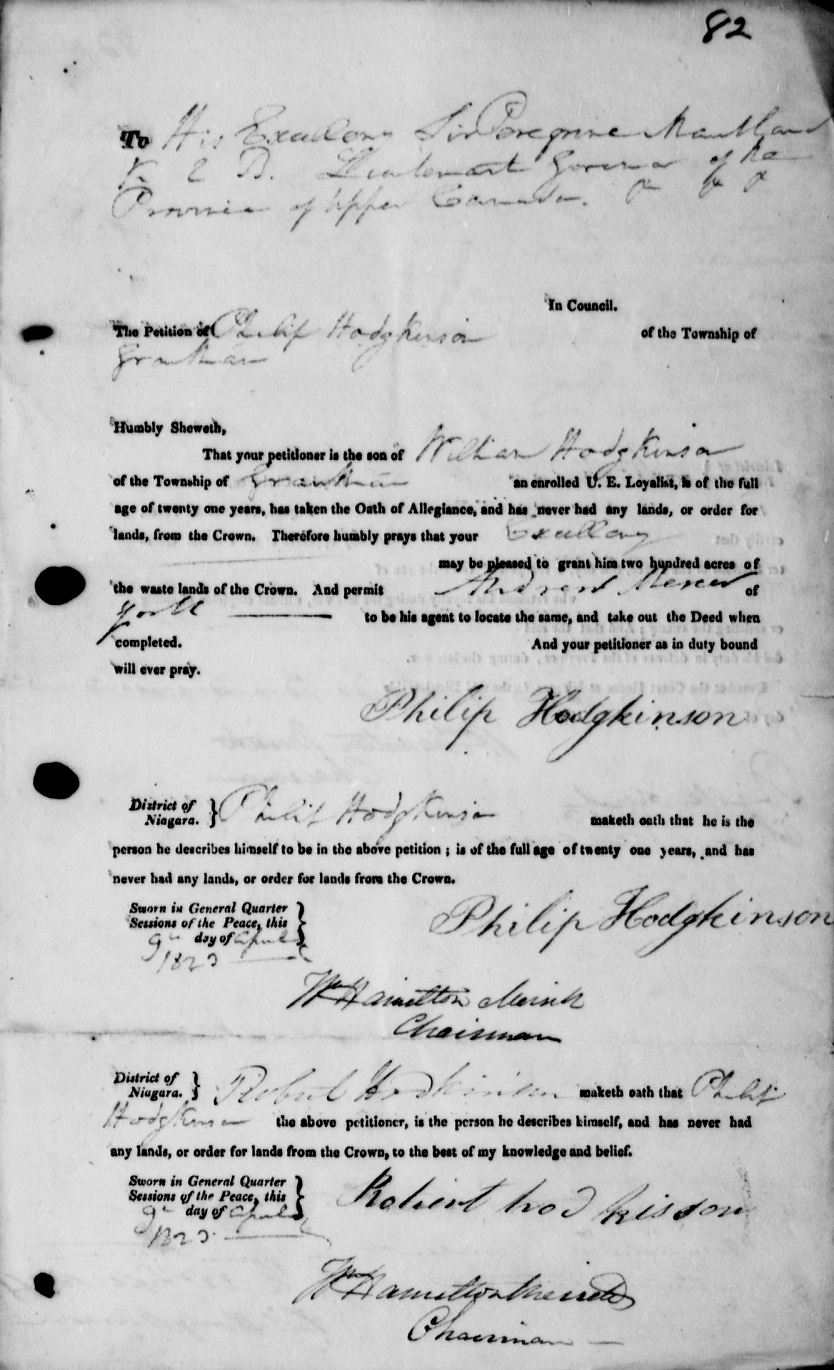 82
To His Excellency Sir Peregrine Maitland
K. C B. Lieutenant Governor of the
Province of Upper Canada. &c &c &c
In Council.
The Petition of Philip Hodgkinson of the Township of
Grantham
Humbly Sheweth,
That your petitioner is the son of William Hodgkinson
of the Township of Grantham an enrolled U. E. Loyalist, is of the full
age of twenty one years, has taken the Oath of Allegiance, and has never had any lands, or order for
lands, from the Crown. Therefore humbly prays that your Excellency
may be pleased to grant him two hundred acres of
the waste lands of the Crown. And permit Andrew Mercer of
York to be his agent to locate the same, and take out the Deed when
completed. And your petitioner as in duty bound
will ever pray.
Philip Hodgkinson
District of Niagara. } Philip Hodgkinson maketh oath that he is the
person he describes himself to be in the above petition ; is of the full age of twenty one years, and has
never had any lands, or order for lands from the Crown.
Sworn in General Quarter
Sessions of the Peace, this
9th day of April
1823
Philip Hodgkinson
Wm Hamilton Merritt
Chairman
District of Niagara. } Robert Hodkinson maketh oath that Philip
Hodgkinson the above petitioner, is the person he describes himself, and has never had
any lands, or order for lands from the Crown, to the best of my knowledge and belief.
Sworn in General Quarter
Sessions of the Peace, this
9th day of April
1823
Robert hodkisson
Wm Hamilton Merritt
Chairman